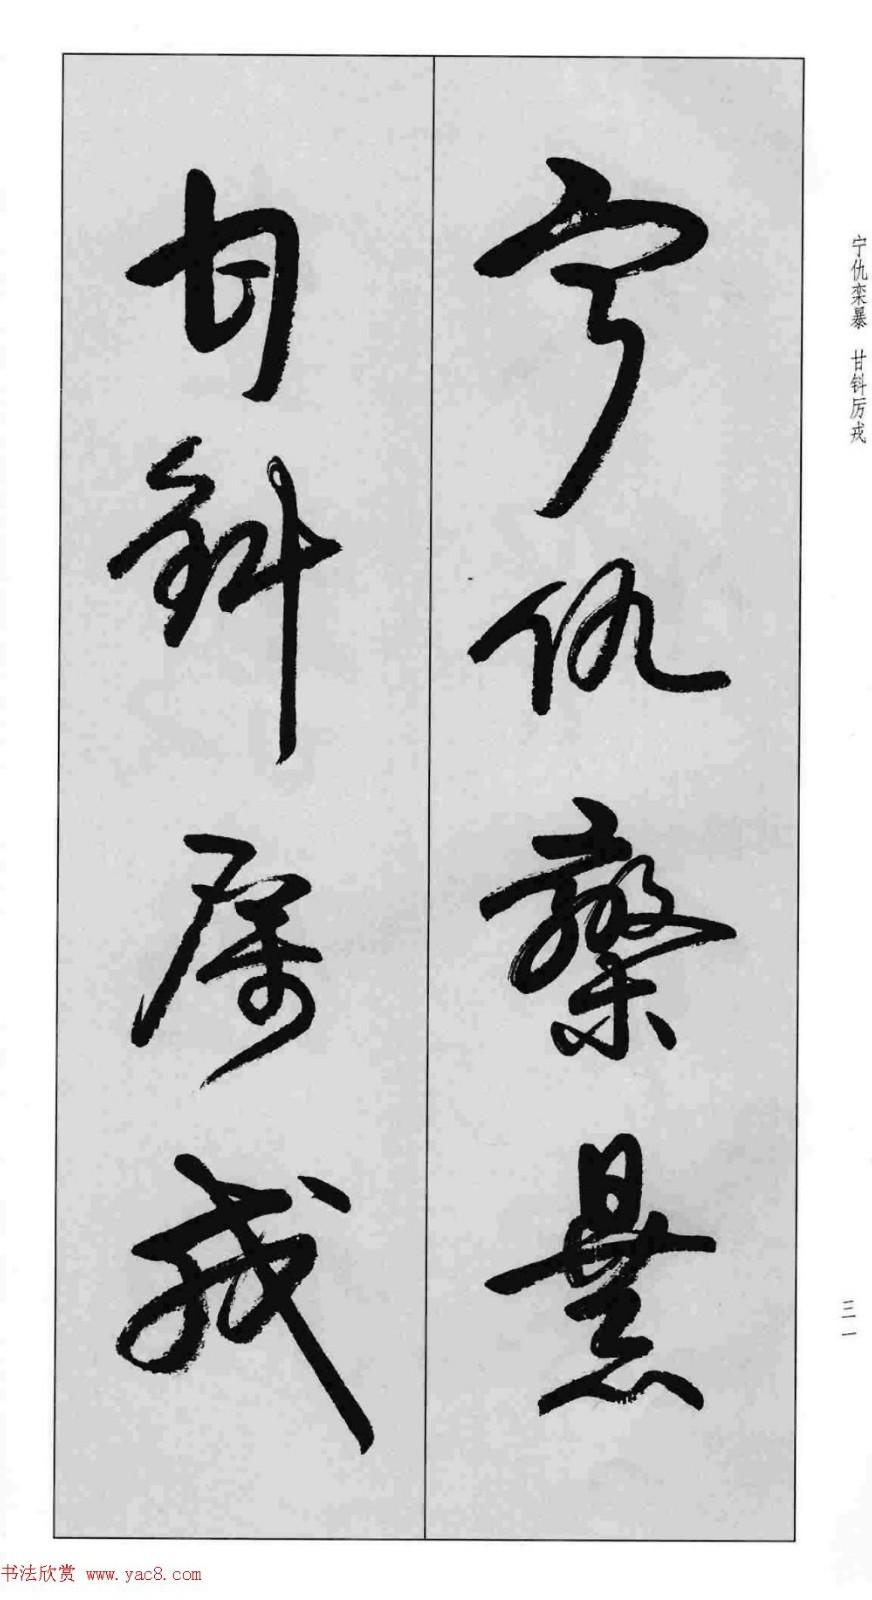 宁仇栾暴
甘钭厉戎
宁仇栾暴 甘钭厉戎
三一
书法欣赏 www.yac8.com